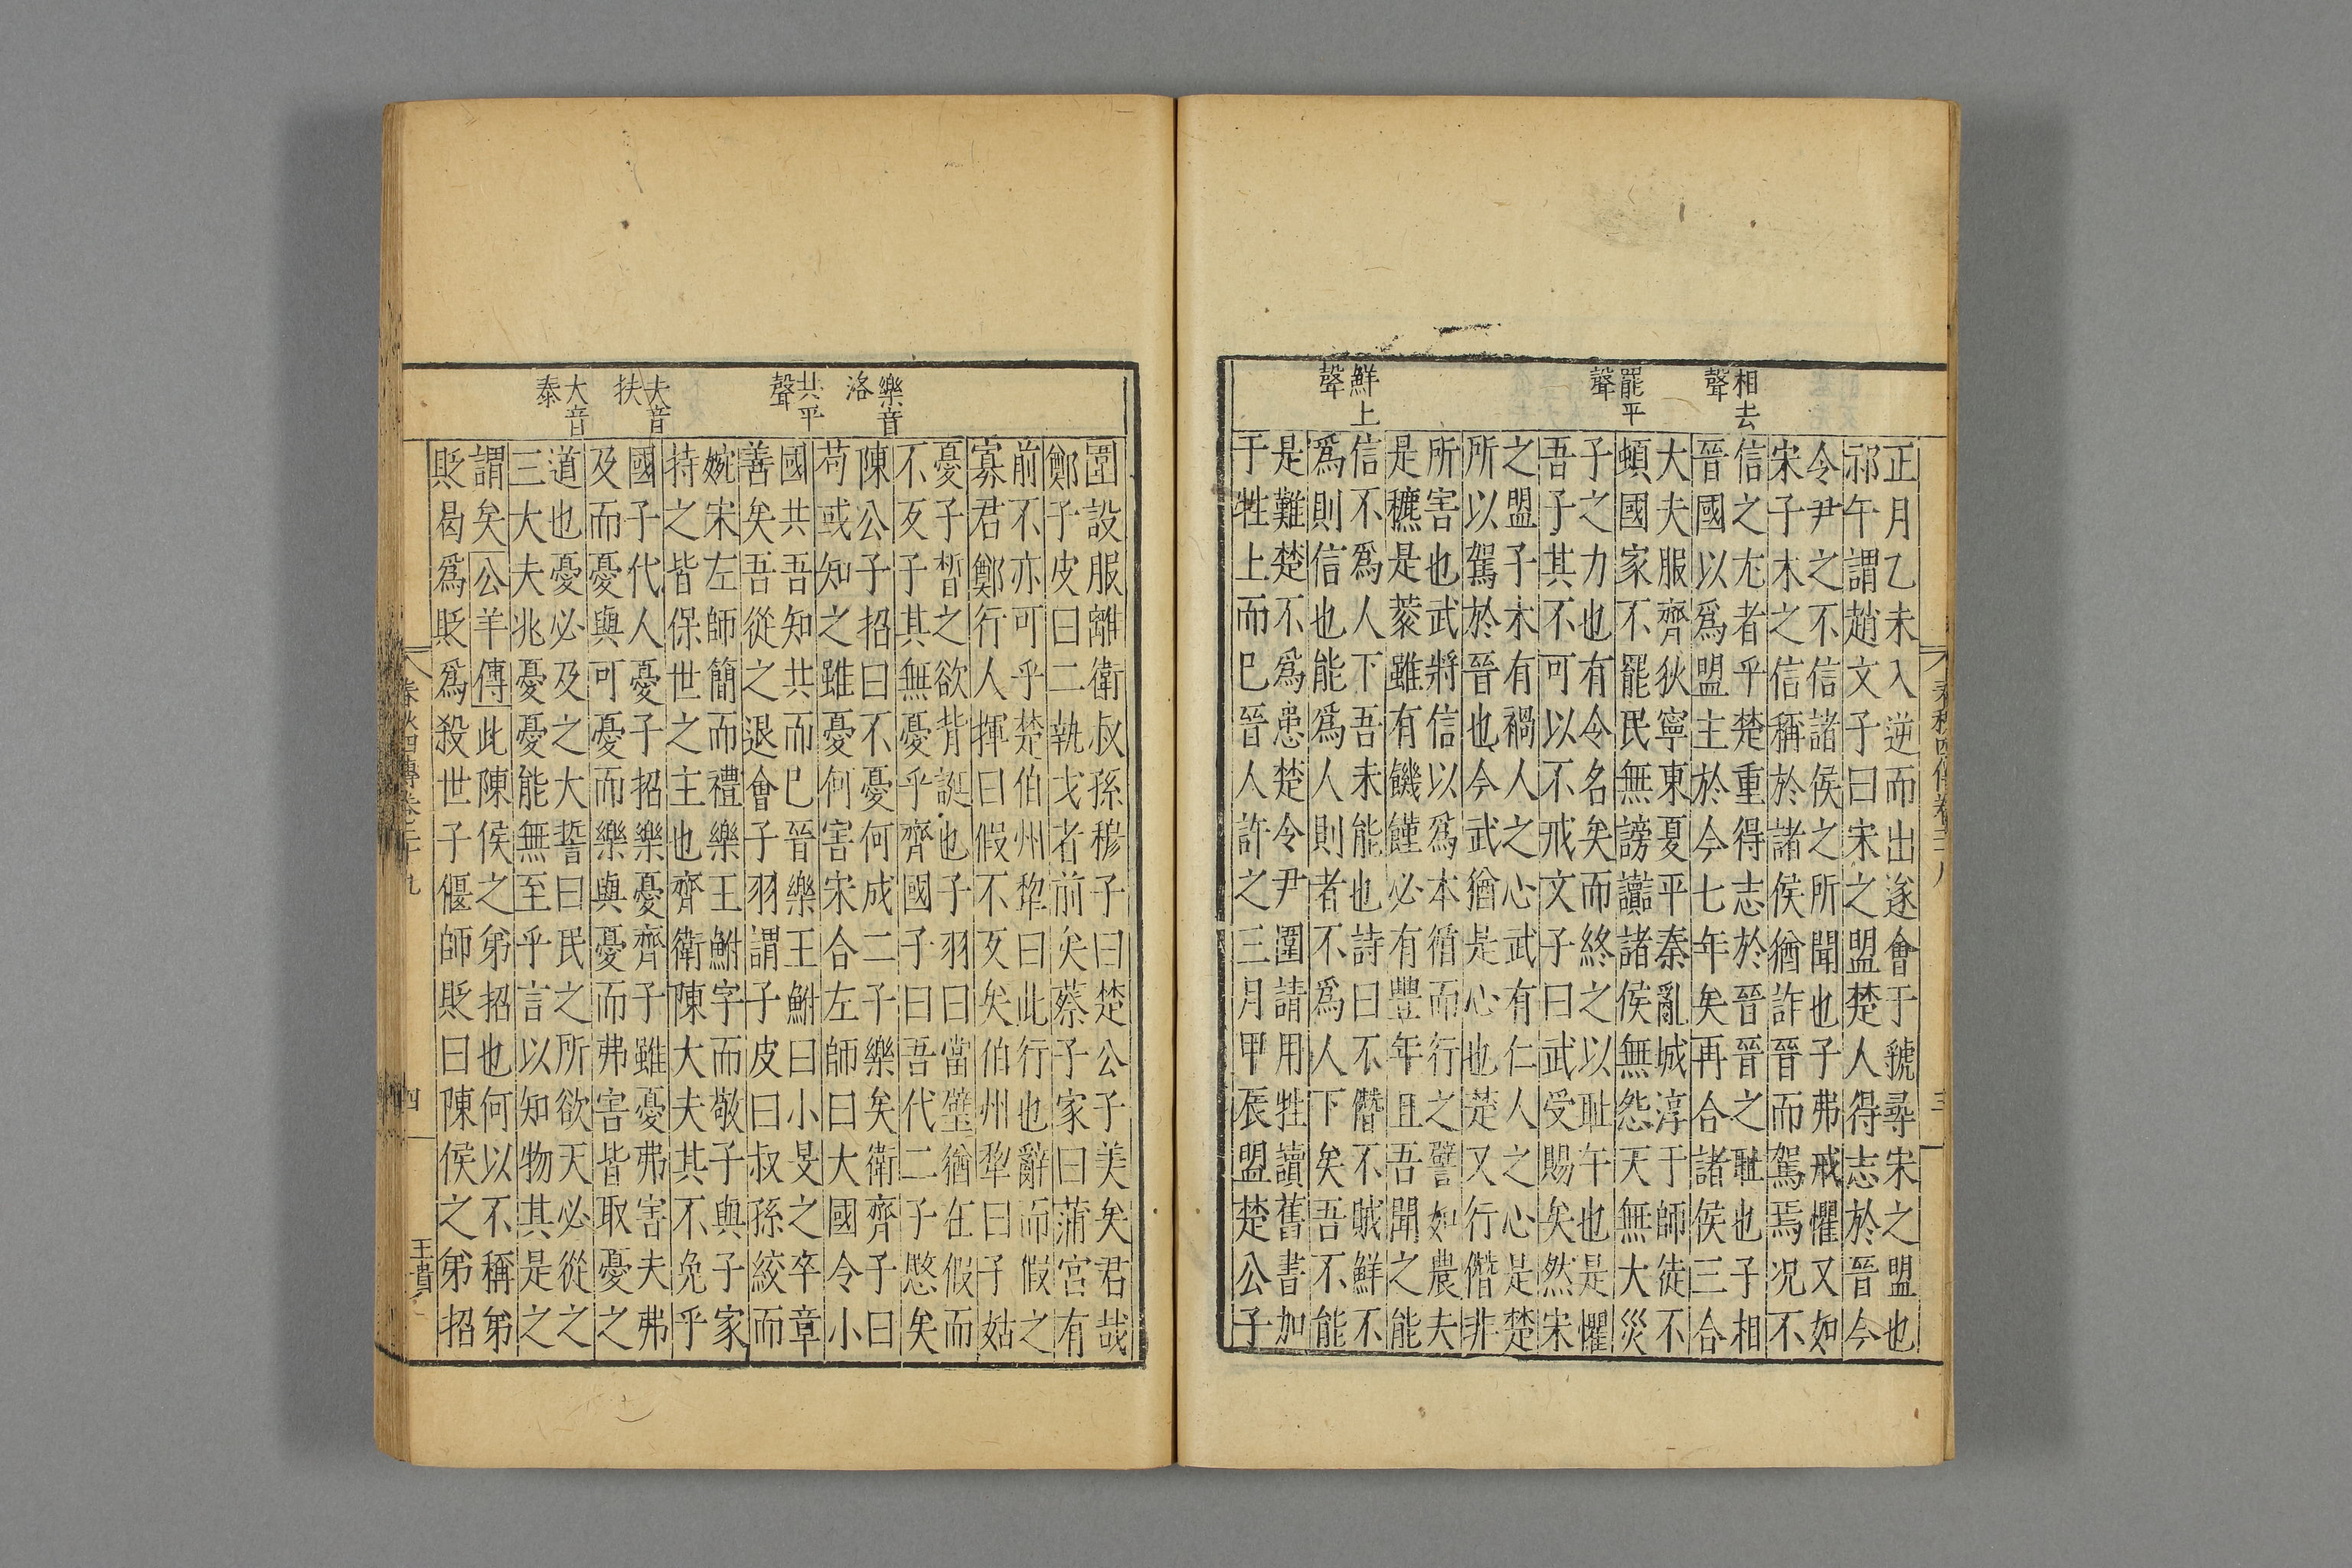 相去
聲
罷平
聲
鮮上
聲
正月乙未入逆而出遂會于虢尋宋之盟也
祁午謂趙文子曰宋之盟楚人得志於晉今
令尹之不信諸侯之所聞也子弗戒懼又如
宋子木之信稱於諸侯猶詐晉而駕焉况不
信之尢者乎楚重得志於晉晉之耻也子相
晉國以爲盟主於今七年矣再合諸侯三合
大夫服齊狄寧東夏平秦亂城淳于師徒不
頓國家不罷民無謗讟諸侯無怨天無大災
子之力也有令名矣而終之以耻午也是懼
吾子其不可以不戒文子曰武受賜矣然宋
之盟子木有禍人之心武有仁人之心是楚
所以駕於晉也今武猶是心也楚又行僭非
所害也武將信以爲本循而行之譬如農夫
是穮是蓘雖有饑饉必有豐年且吾聞之能
信不爲人下吾未能也詩曰不僭不賊鮮不
爲則信也能爲人則者不爲人下矣吾不能
是難楚不爲患楚令尹圍請用牲讀舊書加
于牲上而已晉人許之三月甲辰盟楚公子
樂音
洛
共平
聲
夫音
扶
大音
泰
圍設服離衛叔孫穆子曰楚公子美矣君哉
鄭子皮曰二執戈者前矣蔡子家曰蒲宮有
前不亦可乎楚伯州犂曰此行也辭而假之
寡君鄭行人揮曰假不反矣伯州犂曰子姑
憂子晳之欲背誕也子羽曰當璧猶在假而
不反子其無憂乎齊國子曰吾代二子愍矣
陳公子招曰不憂何成二子樂矣衛齊子曰
苟或知之雖憂何害宋合左師曰大國令小
國共吾知共而已晉樂王鮒曰小旻之卒章
善矣吾從之退會子羽謂子皮曰叔孫絞而
婉宋左師簡而禮樂王鮒字而敬子與子家
持之皆保世之主也齊衛陳大夫其不免乎
國子代人憂子招樂憂齊子雖憂弗害夫弗
及而憂與可憂而樂與憂而弗害皆取憂之
道也憂必及之大誓曰民之所欲天必從之
三大夫兆憂憂能無至乎言以知物其是之
謂矣公羊傳此陳侯之弟招也何以不稱弟
貶曷爲貶爲殺世子偃師貶曰陳侯之弟招
春秋四傳卷二十九
四